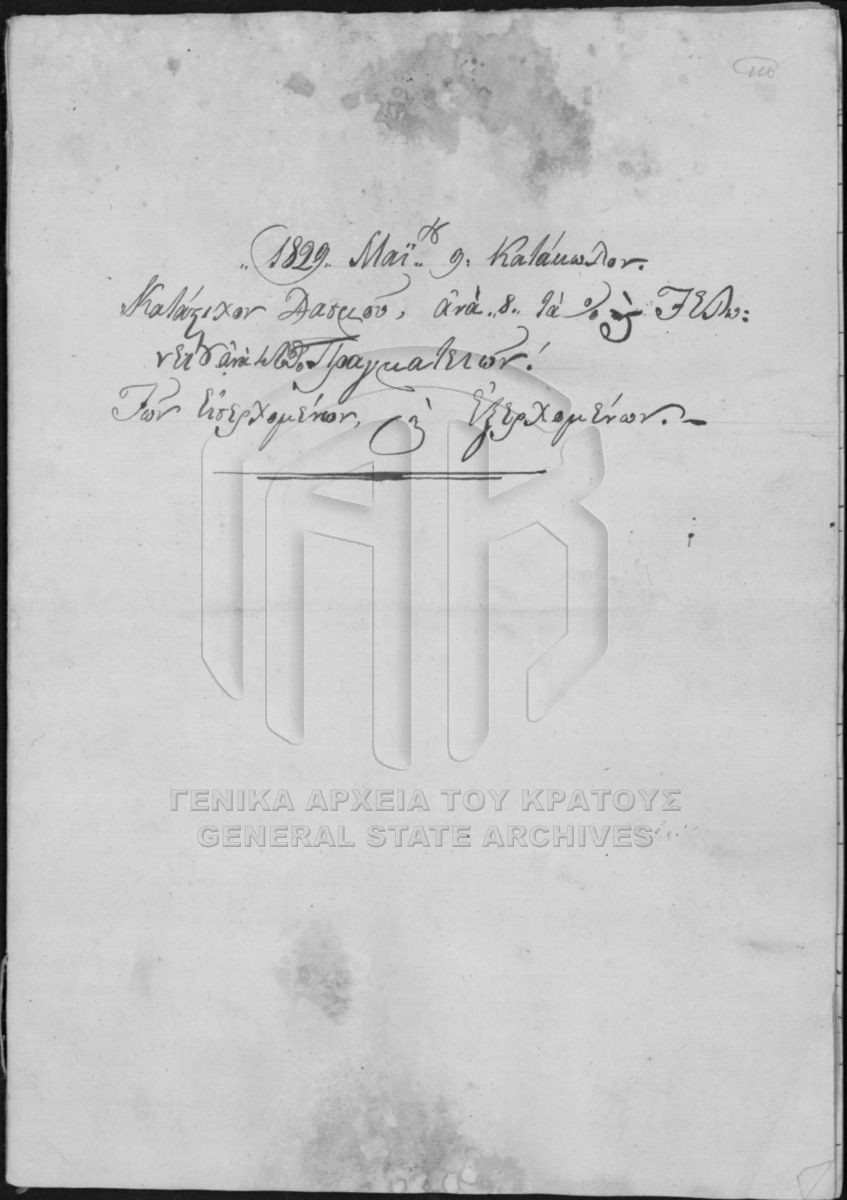 „ 1829„ Μαΐ„ 9. Κατάκωλον.
Κατάστιχον Δασμοῦ, ἀνὰ „8„ τὰ % ϗ Τελω:
ἀνὰ Πραγματειῶν!
Τῶν Εἰσερχομένων, ϗ Ἐξερχομένων.–
ΓΕΝΙΚΑ ΑΡΧΕΙΑ ΤΟΥ ΚΡΑΤΟΥΣ
GENERAL STATE ARCHIVES